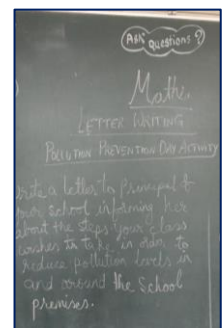 Ask Questions?
Maths.
LETTER WRITING
POLLUTION PREVENTION DAY ACTIVITY
rite a letter to Principal of
your School informing her
about the steps your class
wishes to take in order to
reduce pollution levels in
and around the School
premises.